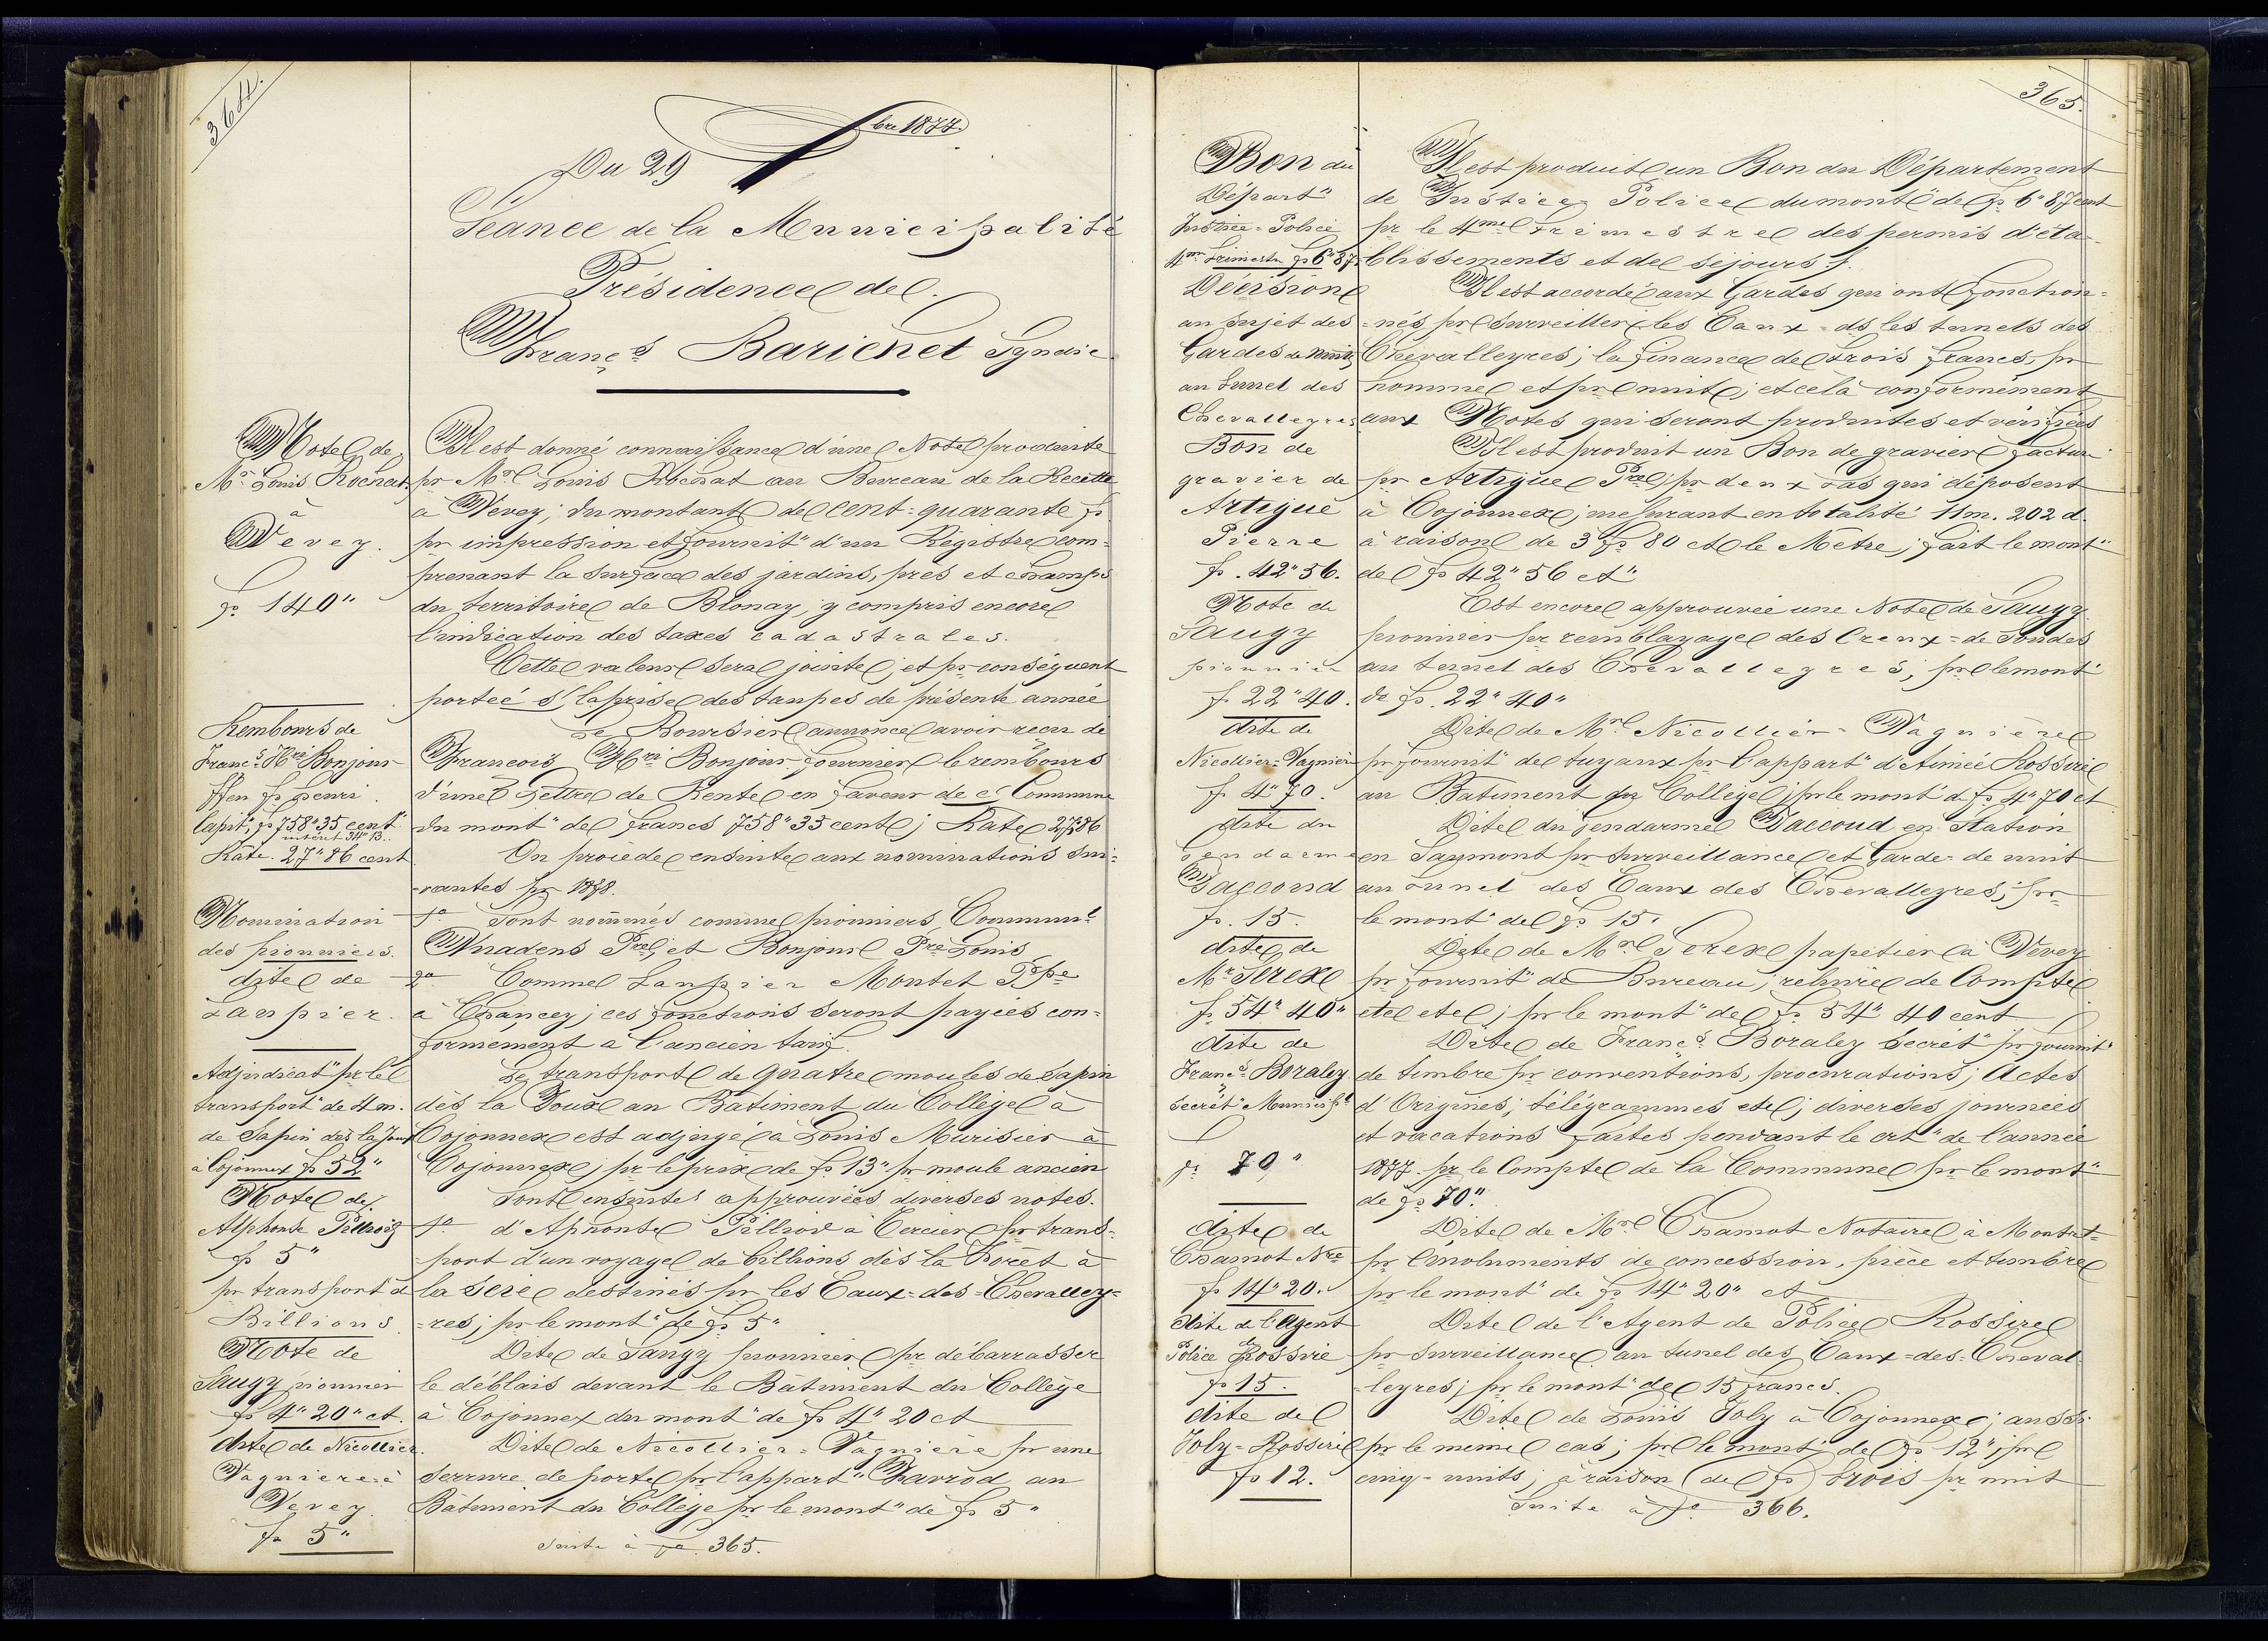 364.
Du 29 bre 1877.
Séance de la Municipalité
Présidence de
Franç.s Barichet Syndic
Note de
Mr Louis Rochat
à
Vevey.
fr 140"
Il est donné connaissance d'une Note produite
pr Mr Louis Rochat au Bureau de la Recette
à Vevey; du montant de cent-quarante fr
pr impression et fournit" d'un Régistre com-
prenant la surface des jardins, prés et champs
du territoire de Blonay, y compris encore
l'indication des taxes cadastrales.
Cette valeur sera jointe, et pr conséquent
portée s/ la prise des taupes de présente année
Rembours de
Franc.s Hri Bonjour
ffeu fs henri
Capit", fr 758" 35 cent
intérêt 34" 13..
Rate. 27" 86 cent
Le Boursier annonce avoir reçu de
Francois Hri Bonjour fournier le rembours
d'une Lettre de Rente en faveur de c/ Commune
du mont" de francs 758" 35 cent; Rate 27" 86
On procède ensuite aux nominations sui-
-vantes pr 1878.
Nomination
des pionniers.
1o Sont nommés comme pionniers, Commun.l
Pre et Bonjour Pre Louis
dite de
Taupier.
2o Comme Taupier Montet Ppe
à Chançey; ces fonctions seront payées con-
formément à l'ancien tarif.
Adjudicat" pr le
transport" de 4 m.
de Sapin dès la Joux
à Cojonnex fr 52"
Le transport de quatre moules de sapin
dès la Joux au Bâtiment du Collège à
Cojonnex est adjugé à Louis Murisier à
Cojonnex; pr le prix de fr 13" pr moule ancien
Sont ensuites approuvées diverses notes.
Note de
Alphonse Pilliod
fr 5"
pr transport d
Billions
1o d'Aphonse Pilliod à Cercier pr trans-
-port d'un voyage de billions dès la Forêt à
la scie destinés pr les Eaux-des-Chevalley-
-res; pr le mont" de fr 5"
Note de
Saugy pionnier
fr 4" 20" ct.
Dite de Saugy pionnier pr débarrasser
le déblais devant le Bâtiment du Collège
à Cojonnex du mont" de fr 4" 20 ct
dite de Nicollier.
Vagnière à
Vevey
fr 5"
Dite de Nicollier-Vagnière pr une
serrure de porte pr l'appart" Chavrod au
Bâtiment du Collège pr le mont" de fr 5"
Suite à fo 365.
365.
Bon du
Départ"
Justice-Police
4me Trimestre fr 6" 87
Il est produit un Bon du Département
de Justice Police du mont" de fr 6" 87 cent
pr le 4me trimestre des permis d'éta-
blissements et de séjours.
Décision
au sujet des
Gardes de nuits
au tunel des
Chevalleyres
Il est accordé aux Gardes qui ont fonction-
-nés pr surveiller les Eaux-ds les tunels des
Chevalleyres; la finance de trois francs, pr
homme et pr nuit; et celà conformément
aux Notes qui seront produites et vérifiées
Bon de
gravier de
Artigue
Pierre
fr. 42" 56.
Il est produit un Bon de gravier factur
pr Artigue Pre pr deux tas qui déposent
à Cojonnex; mesurant en totalité 11 m. 202 d.
à raison de 3 fr 80 ct le Mètre; fait le mont"
de fr 42" 56 ct"
Note de
Saugy
pionnier
fr 22" 40.
Est encore approuvée une Note de Saugy
pionnier pr remblayage des Creux-de Sondes
au tunel des Chevalleyres, pr le mont"
de fr. 22" 40"
dite de
Nicollier-Vagnier
fr 4" 70.
Dite de Mr Nicollier-Vagnière
pr fournit" de tuyaux pr l'appart" d'Aimée Rossire
au Batiment du Collège; pr le mont" d fr 4" 70 ct
dite du
Gendarme
Jaccoud
fr. 15.
Dite du Gendarme Jaccoud en Station
en Saymont pr surveillance et Garde-de nuit
au tunel des Eaux des Chevalleyres; pr
le mont" de fr 15"
dite de
Mr Serex
fr 54" 40"
Dite de Mr Serex papetier à Vevey
pr fournit" de Bureau, reliure de Compte
etc etc; pr le mont" de fr 54" 40 cent
dite de
Franc.s Boraley
Secrét" Municip.l
fr 70"
Dite de Franc.s Boraley Secrét" pr fournit"
de timbre pr conventions, procurations; Actes
d'Origines; télégrammes etc; diverses journées
et vacations faites pendant le crt" de l'année
1877. pr le Compte de la Commune pr le mont"
de fr 70".
dite de
Chamot Nre
fr 14" 20.
Dite de Mr Chamot Notaire, à Montet-
pr émoluments de concession, pièce et timbre
pr le mont" de fr 14" 20" ct
dite de l'Agent
de Police Rossire
fr 15.
Dite de l'Agent de Police Rossire
pr surveillance au tunel des Eaux-des-Cheval-
leyres; pr le mont" de 15 francs.
dite de
Joly-Rossire
fr 12.
Dite de Louis Joly à Cojonnex; aussi
pr le même cas; pr le mont" de fr 12"; pr
cinq-nuits; à raison (de fr) trois pr nuit
Suite à fo 366.